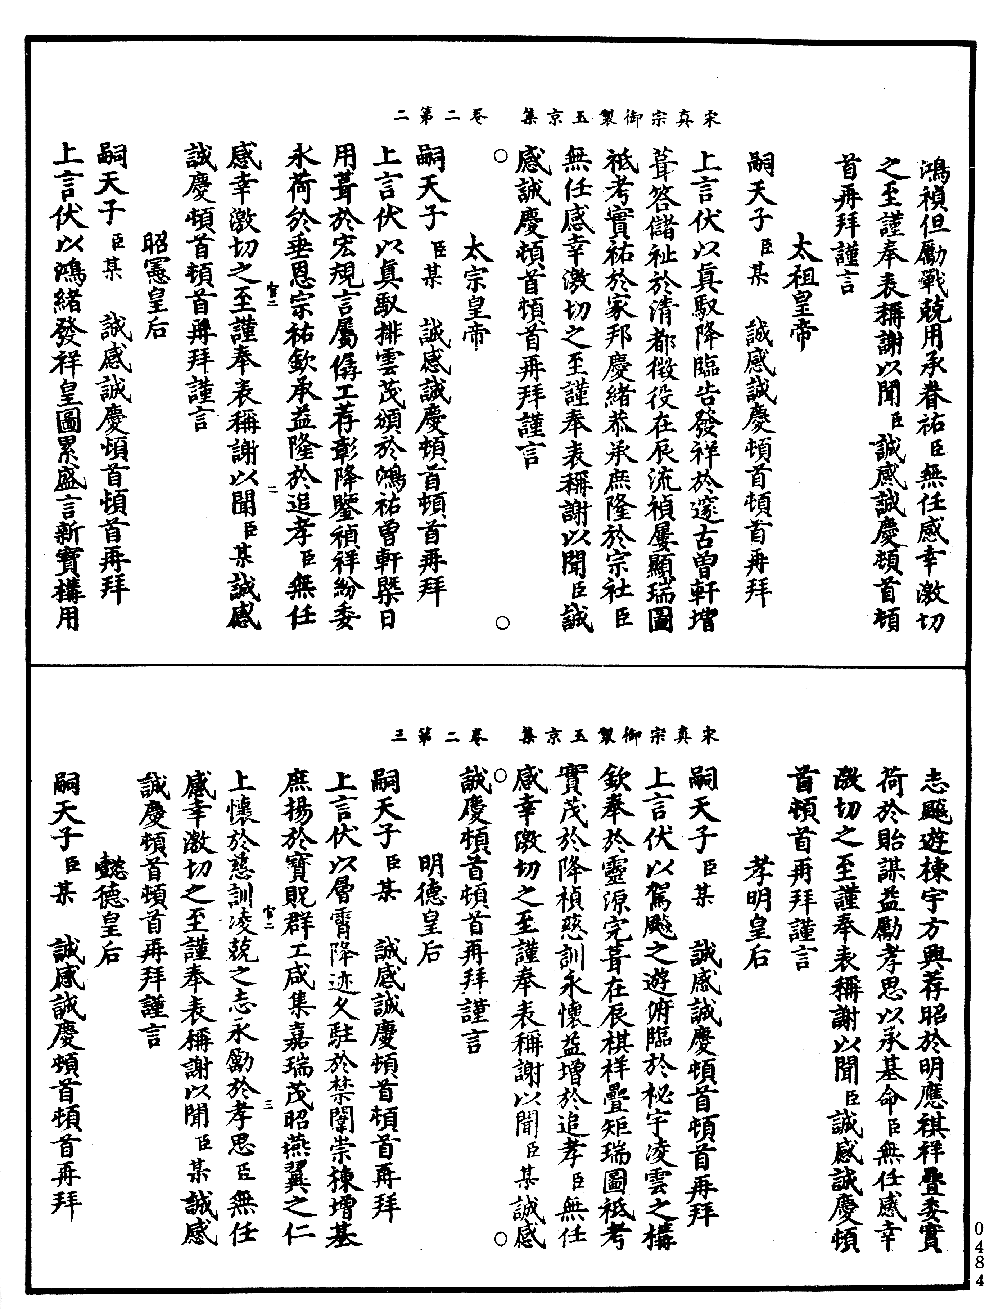 宋真宗御製玉京集　卷二第二
鴻禎但勵戰兢用承眷祐臣無任感幸激切
之至謹奉表稱謝以聞臣誠感誠慶頓首頓
首再拜謹言
太祖皇帝
嗣天子臣某　誠感誠慶頓首頓首再拜
上言伏以真馭降臨告發祥於邃古曾軒增
葺答儲祉於清都徵役在辰流禎屢顯瑞圖
祗考實祐於家邦慶緒恭承庶隆於宗社臣
無任感幸激切之至謹奉表稱謝以聞臣誠
感誠慶頓首頓首再拜謹言
太宗皇帝
嗣天子臣某　誠感誠慶頓首頓首再拜
上言伏以真馭排雲茂頒於鴻祐曾軒槩日
用葺於宏規言屬僝工荐彰降鑒禎祥紛委
永荷於垂恩宗祐欽承益隆於追孝臣無任
感幸激切之至謹奉表稱謝以聞臣某誠感
誠慶頓首頓首再拜謹言
昭憲皇后
嗣天子臣某　誠感誠慶頓首頓首再拜
上言伏以鴻緒發祥皇圖累盛言新寶構用
宋真宗御製玉京集　卷二第三
志飈遊棟宇方興荐昭於明應祺祥疊委實
荷於貽謀益勵孝思以承基命臣無任感幸
激切之至謹奉表稱謝以聞臣誠感誠慶頓
首頓首再拜謹言
孝明皇后
嗣天子臣某　誠感誠慶頓首頓首再拜
上言伏以駕飈之遊俯臨於秘宇凌雲之構
欽奉於靈源完葺在辰祺祥疊矩瑞圖祗考
實茂於降禎慈訓永懷益增於追孝臣無任
感幸激切之至謹奉表稱謝以聞臣某誠感
誠慶頓首頓首再拜謹言
明德皇后
嗣天子臣某　誠感誠慶頓首頓首再拜
上言伏以層霄降迹夂駐於禁闈崇棟增基
庶揚於寶貺群工咸集嘉瑞茂昭燕翼之仁
上懷於慈訓凌兢之志永勵於孝思臣無任
感幸激切之至謹奉表稱謝以聞臣某誠感
誠慶頓首頓首再拜謹言
懿德皇后
嗣天子臣某　誠感誠慶頓首頓首再拜
0484